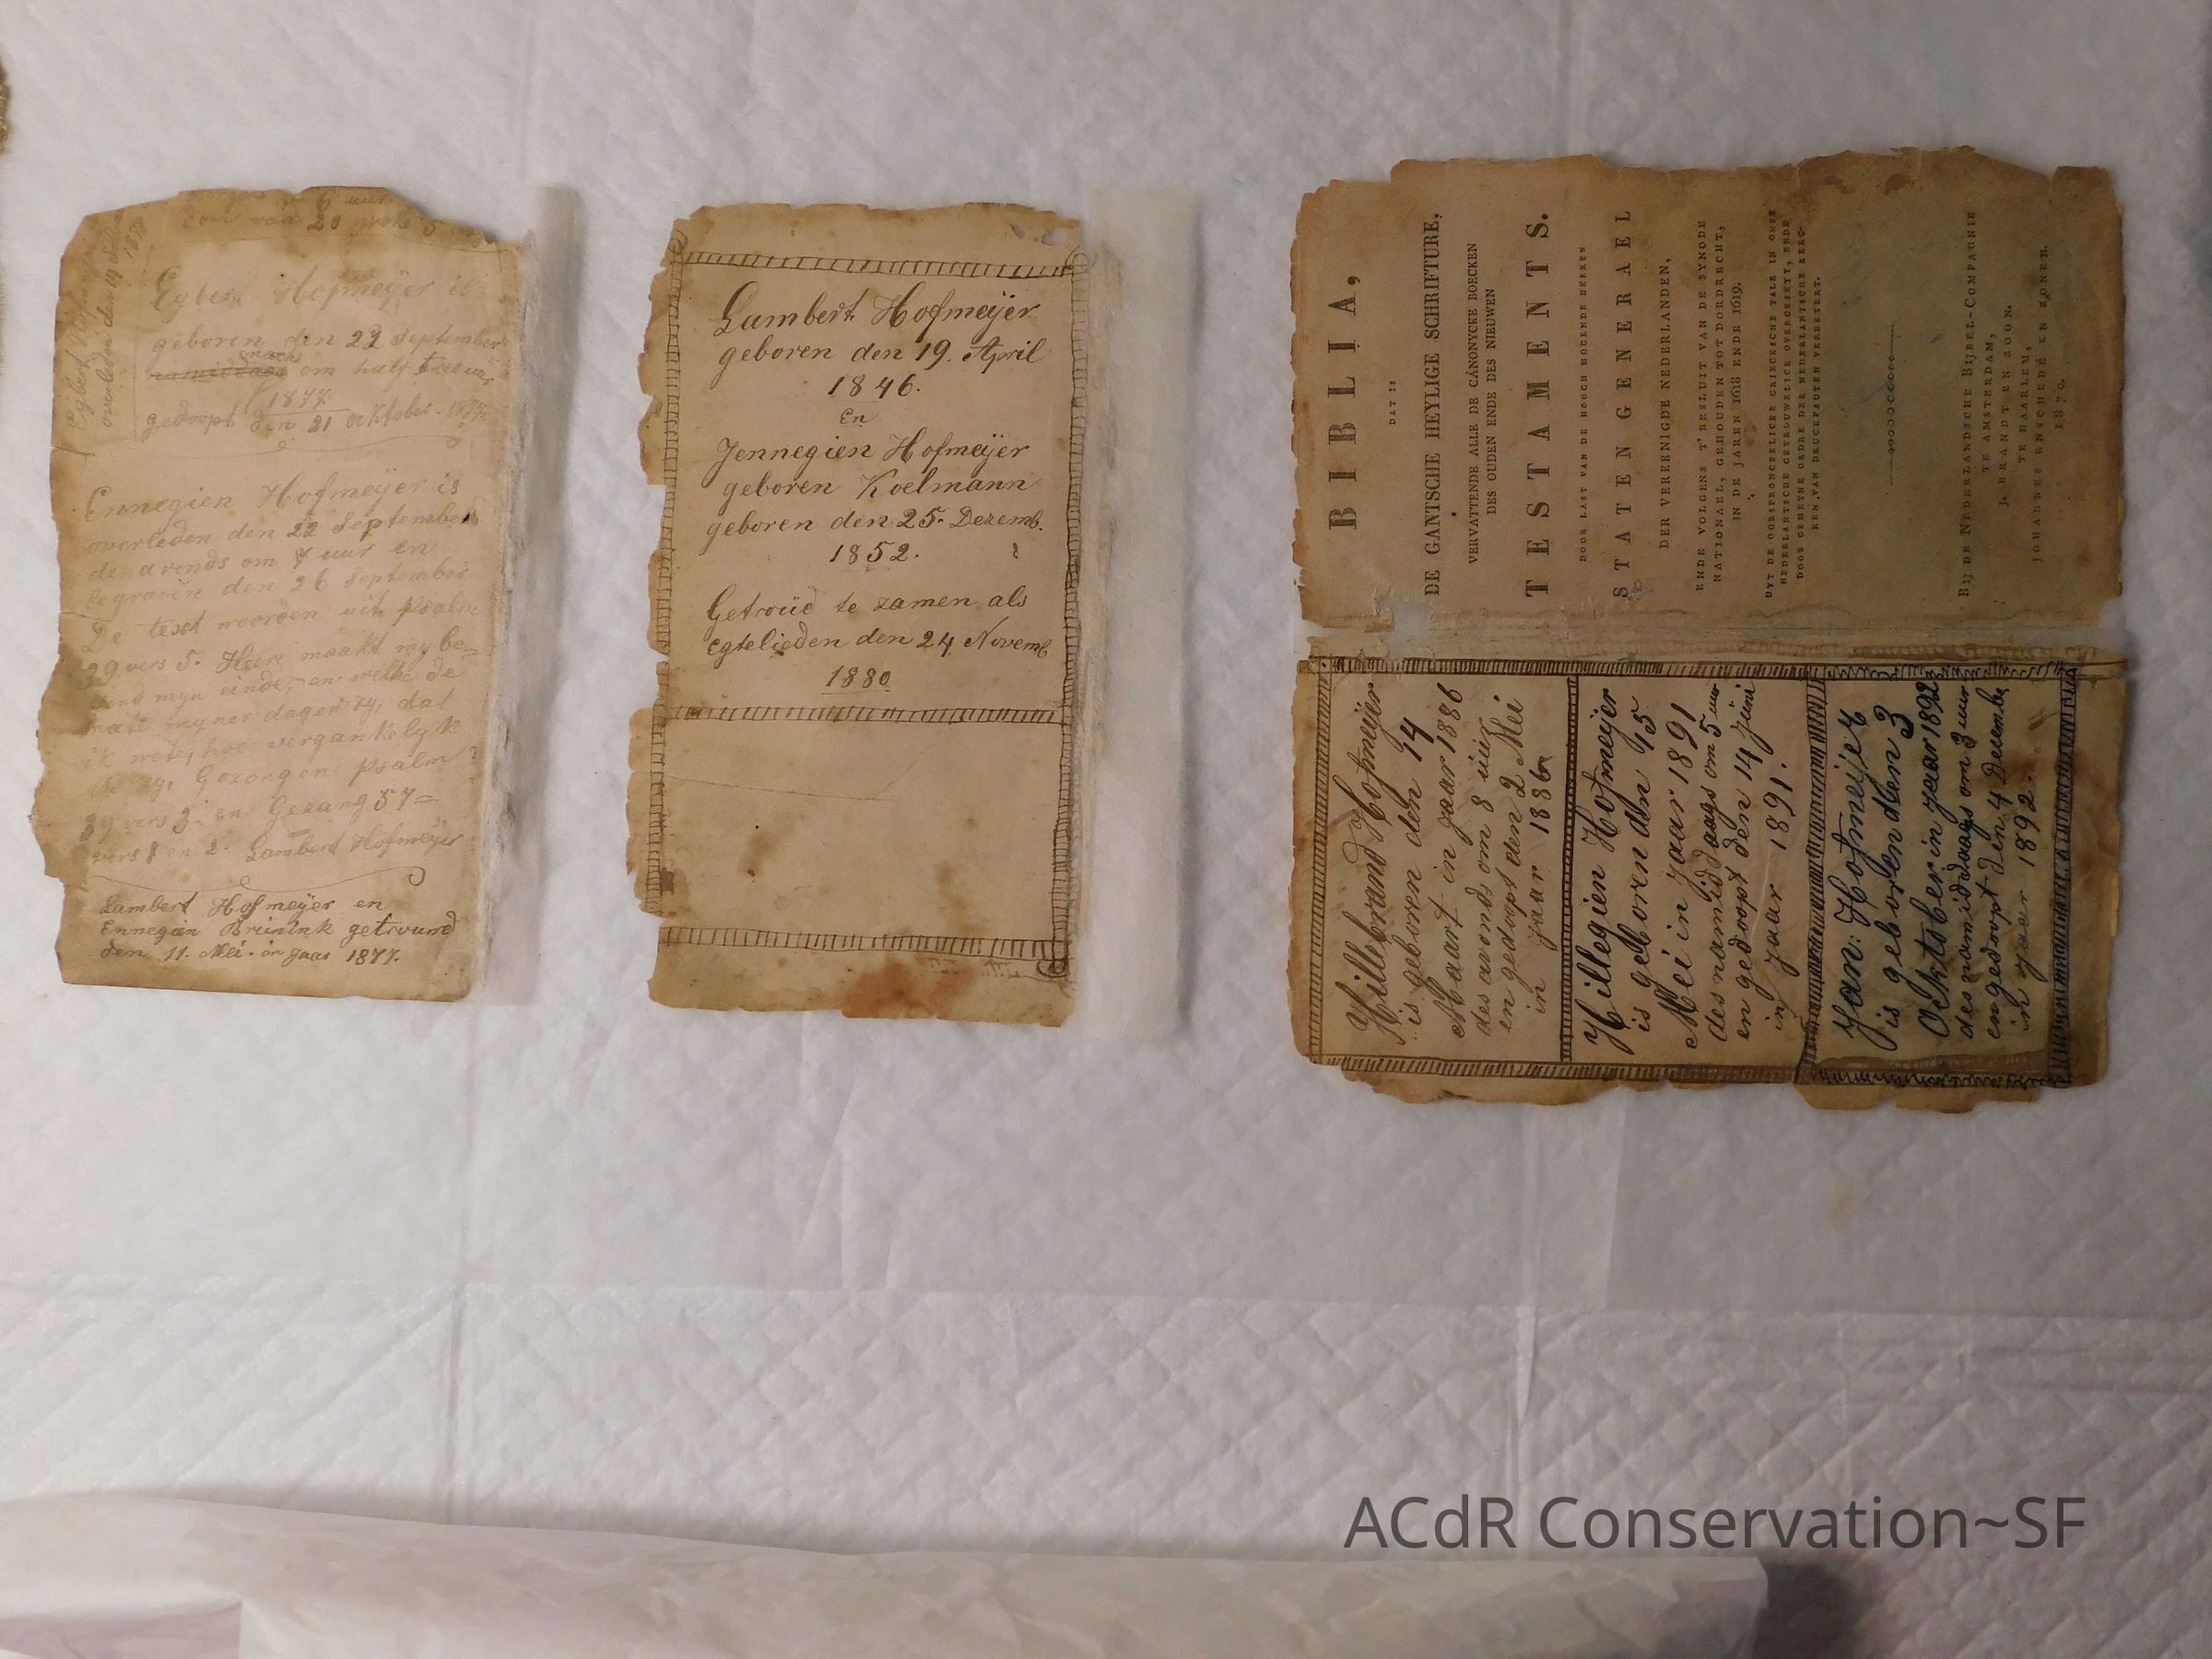 uur
20 weke 5
Egbert
overleden den 19
1878
Egbert Hofmeÿer is
geboren den 22 September
nachs
om half twee uur
1877
gedoopt den 21 oktober 1877
Ennegien Hofmeÿer is
overleden den 22 September
des avonds om 7 uur en
begraven den 26 September
De text woorden uit psalm
39 vers 5. Heere maakt my be=
kend myn einde, en welke de
mate myner dagen zy, dat
ik wete, hoe vergankelyk
ik zy, Gezongen psalm
39 vers 3. en Gezang 57=
vers 1 en 2. Lambert Hofmeÿer
Lambert Hofmeÿer en
Ennegien Brünink getrouwd
den 11. Mei. in jaar 1877.
Lambert Hofmeÿer
geboren den 19. April
1846.
En
Jennegien Hofmeÿer
geboren Koelmann
geboren den 25. Dezemb.
1852.
Getroüd te zamen als
egtelieden den 24 Novemb
1880
BIBLIA,
DAT IS
DE GANTSCHE HEYLIGE SCHRIFTURE,
VERVATTENDE ALLE DE CANONYCKE BOECKEN
DES OUDEN ENDE DES NIEUWEN
TESTAMENTS.
DOOR LAST VAN DE HOOGH MOGENDE HEEREN
STATEN GENERAEL
DER VEREENIGDE NEDERLANDEN,
ENDE VOLGENS 'T BESLUIT VAN DE SYNODE
NATIONAEL, GEHOUDEN TOT DORDRECHT,
IN DE JAREN 1618 ENDE 1619,
UYT DE OORSPRONCKELICKE TALEN IN ONSE
NEDERLANTSCHE GETROUWELICK OVERGEZET, ENDE
DOOR GEMEYNE ORDRE DER NEDERLANTSCHE KERC-
KEN, VAN DRUCKFAUTEN VERBETERT.
BIJ DE NEDERLANDSCHE BIJBEL-COMPAGNIE
TE AMSTERDAM,
J. BRANDT EN ZOON.
TE HAARLEM,
JOHANNES ENSCHEDÉ EN ZONEN.
1870.
Hillebrand Hofmeijer
is geboren den 14
Maart in jaar 1886
des avonds om 8 uür
en gedoopt den 2 Mei
in jaar 1886
Hillegien Hofmeijer
is geboren den 15
Mei in jaar 1891
des namiddaags om 5 uur
en gedoopt den 14 Juni
in jaar 1891.
Jan: Hofmeijer
is geboren den 3
Ocktober in jaar 1892
des namiddaags om 3 uur
en gedoopt den 4 Decembe
in jaar 1892.
ACdR Conservation~SF